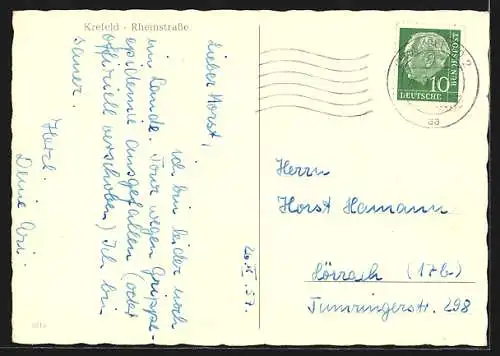 Krefeld - Rheinstraße
26.X.57.
Lieber Horst,
ich bin leider noch
im Lande. Tour wegen Grippe-
epidemie ausgefallen (oder
offiziell verschoben) Ich bin
sauer.
Herzl.
Deine Uri.
10
DEUTSCHE
BUNDESPOST
aa
Herrn
Horst Hamann
Lörrach (17b)
Tumringerstr. 298